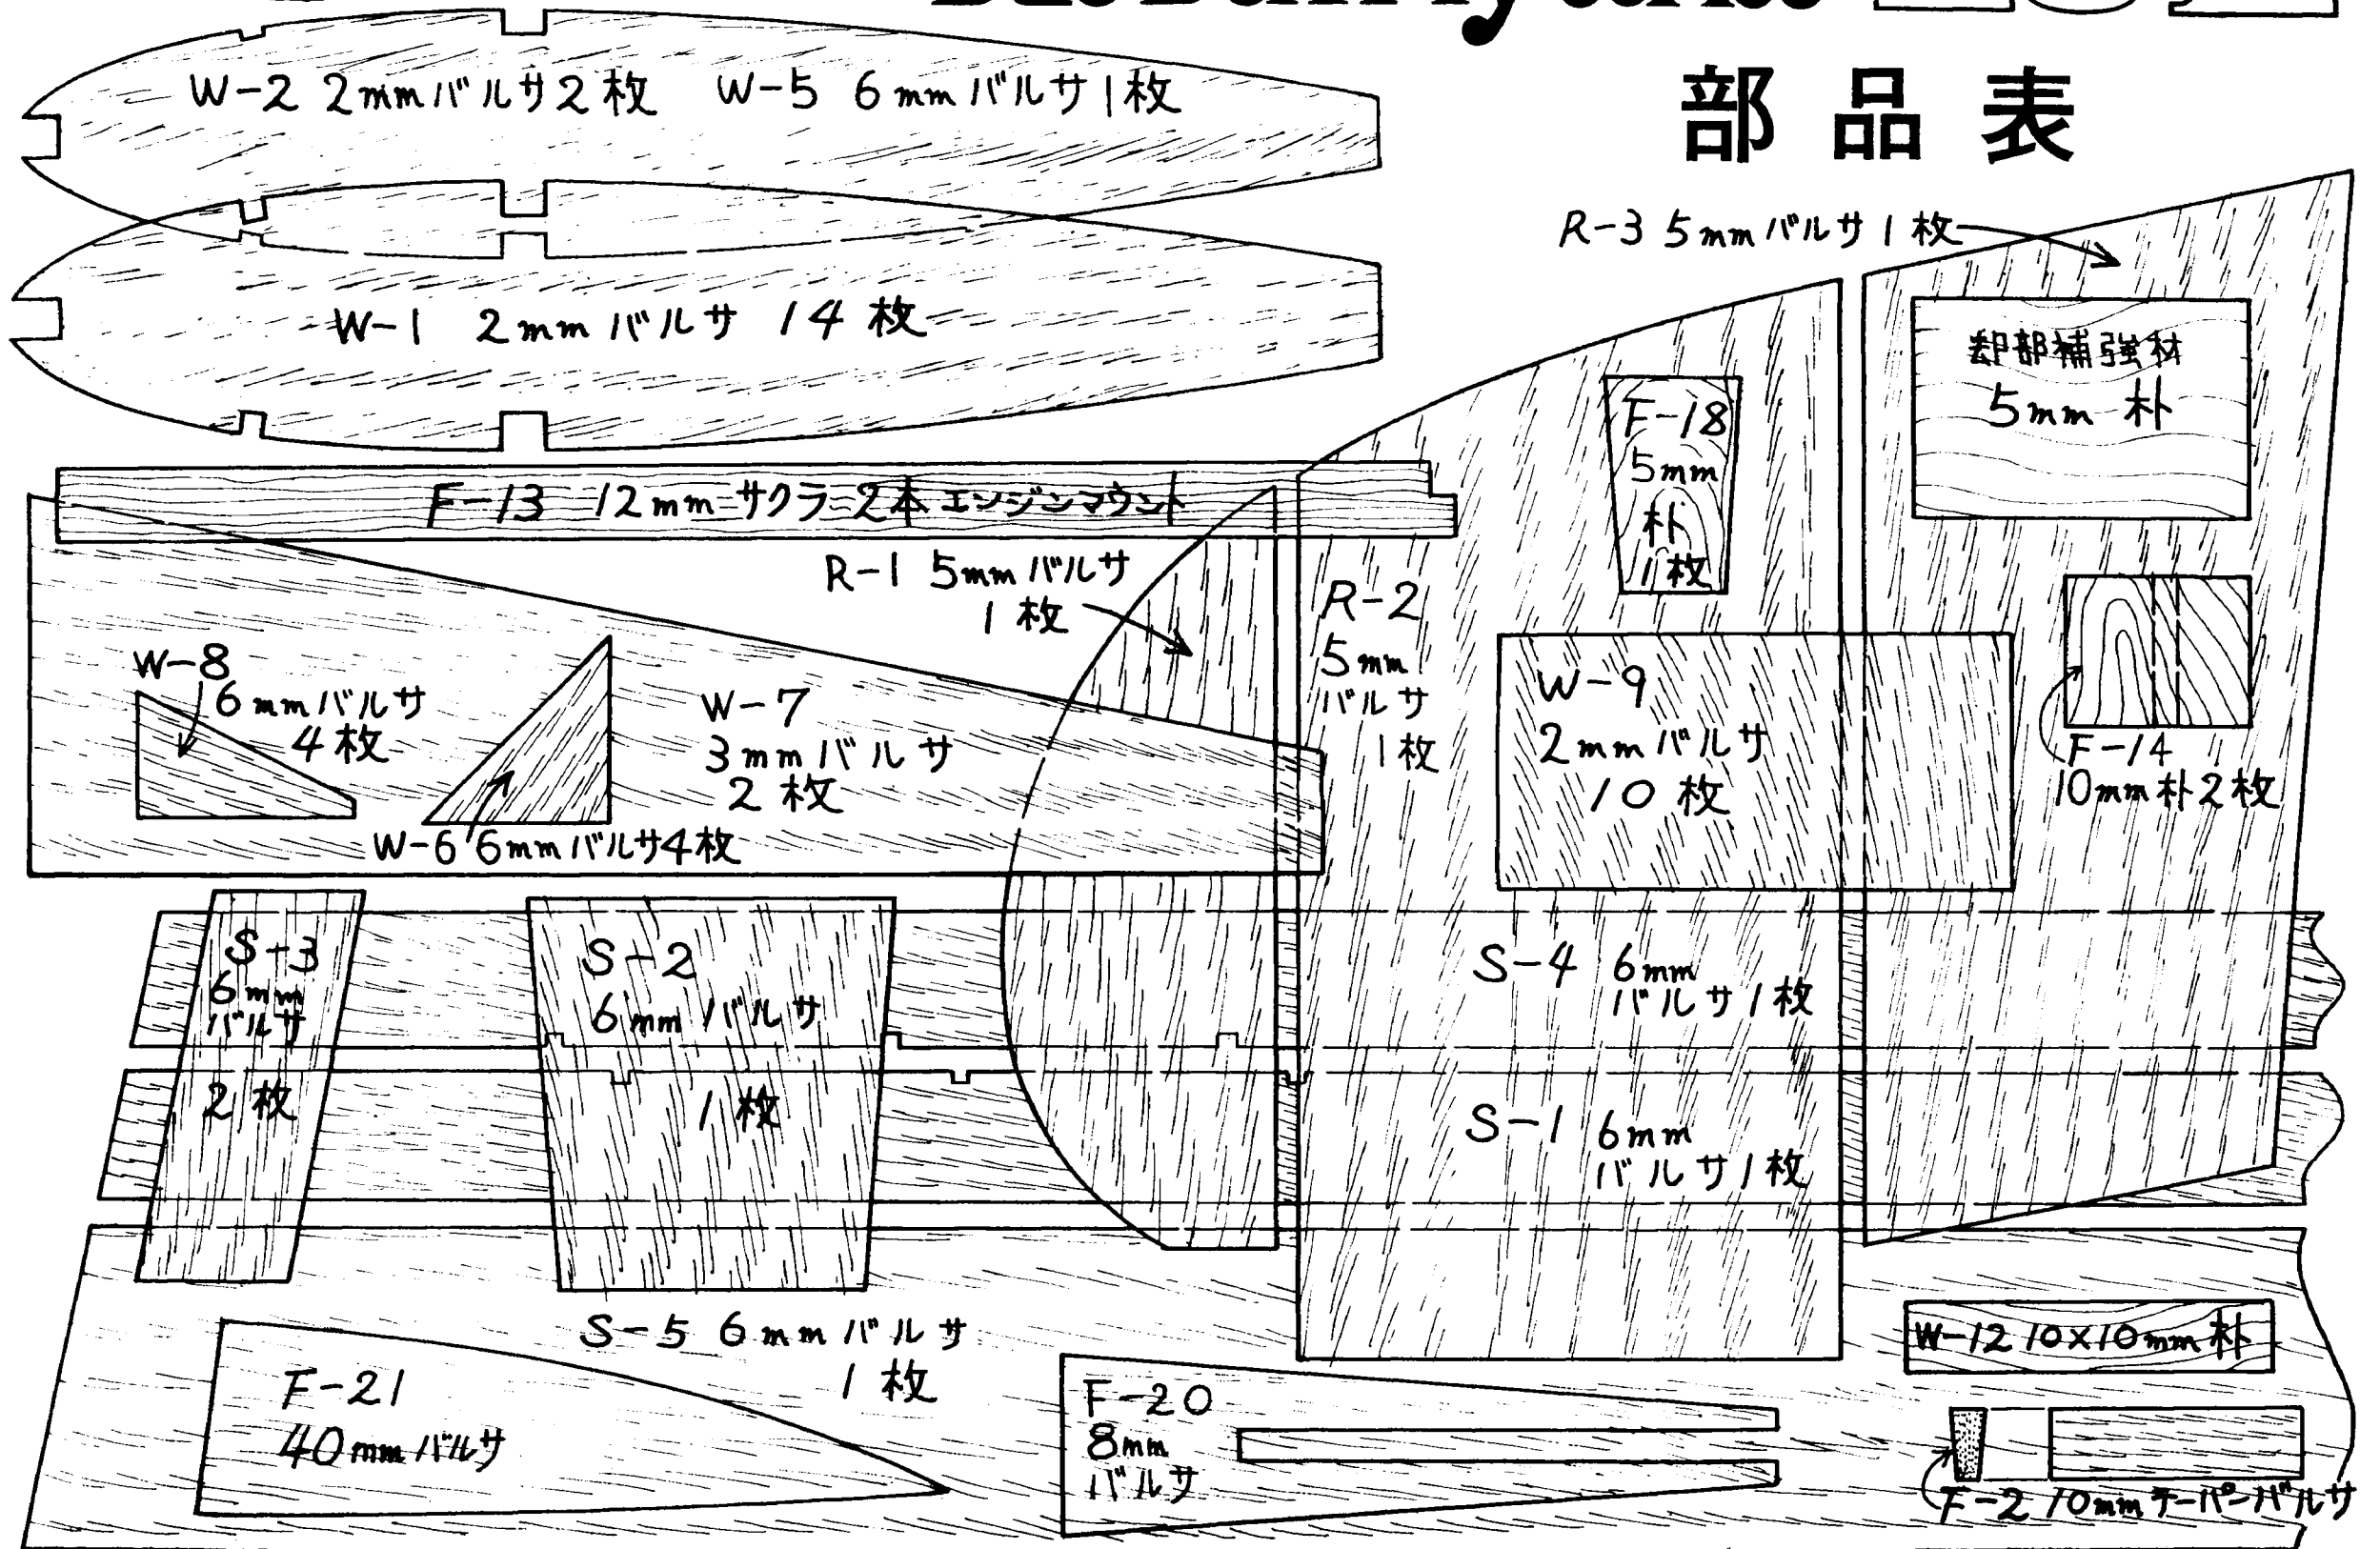 部品表
W-2 2mmバルサ2枚 W-5 6mmバルサ1枚
R-3 5mmバルサ1枚
W-1 2mmバルサ 14枚
却部補強材
5mm 朴
F-18
5mm
朴
1枚
F-13 12mmサクラ2本エンジンマウント
R-1 5mmバルサ
1枚
R-2
5mm
バルサ
1枚
W-8
6mmバルサ
4枚
W-7
3mmバルサ
2枚
W-6 6mmバルサ4枚
W-9
2mmバルサ
10枚
F-14
10mm朴2枚
S-3
6mm
バルサ
2枚
S-2
6mmバルサ
1枚
S-4 6mm
バルサ1枚
S-1 6mm
バルサ1枚
S-5 6mmバルサ
1枚
F-21
40mmバルサ
F-20
8mm
バルサ
W-12 10×10mm朴
F-2 10mmテーパーバルサ